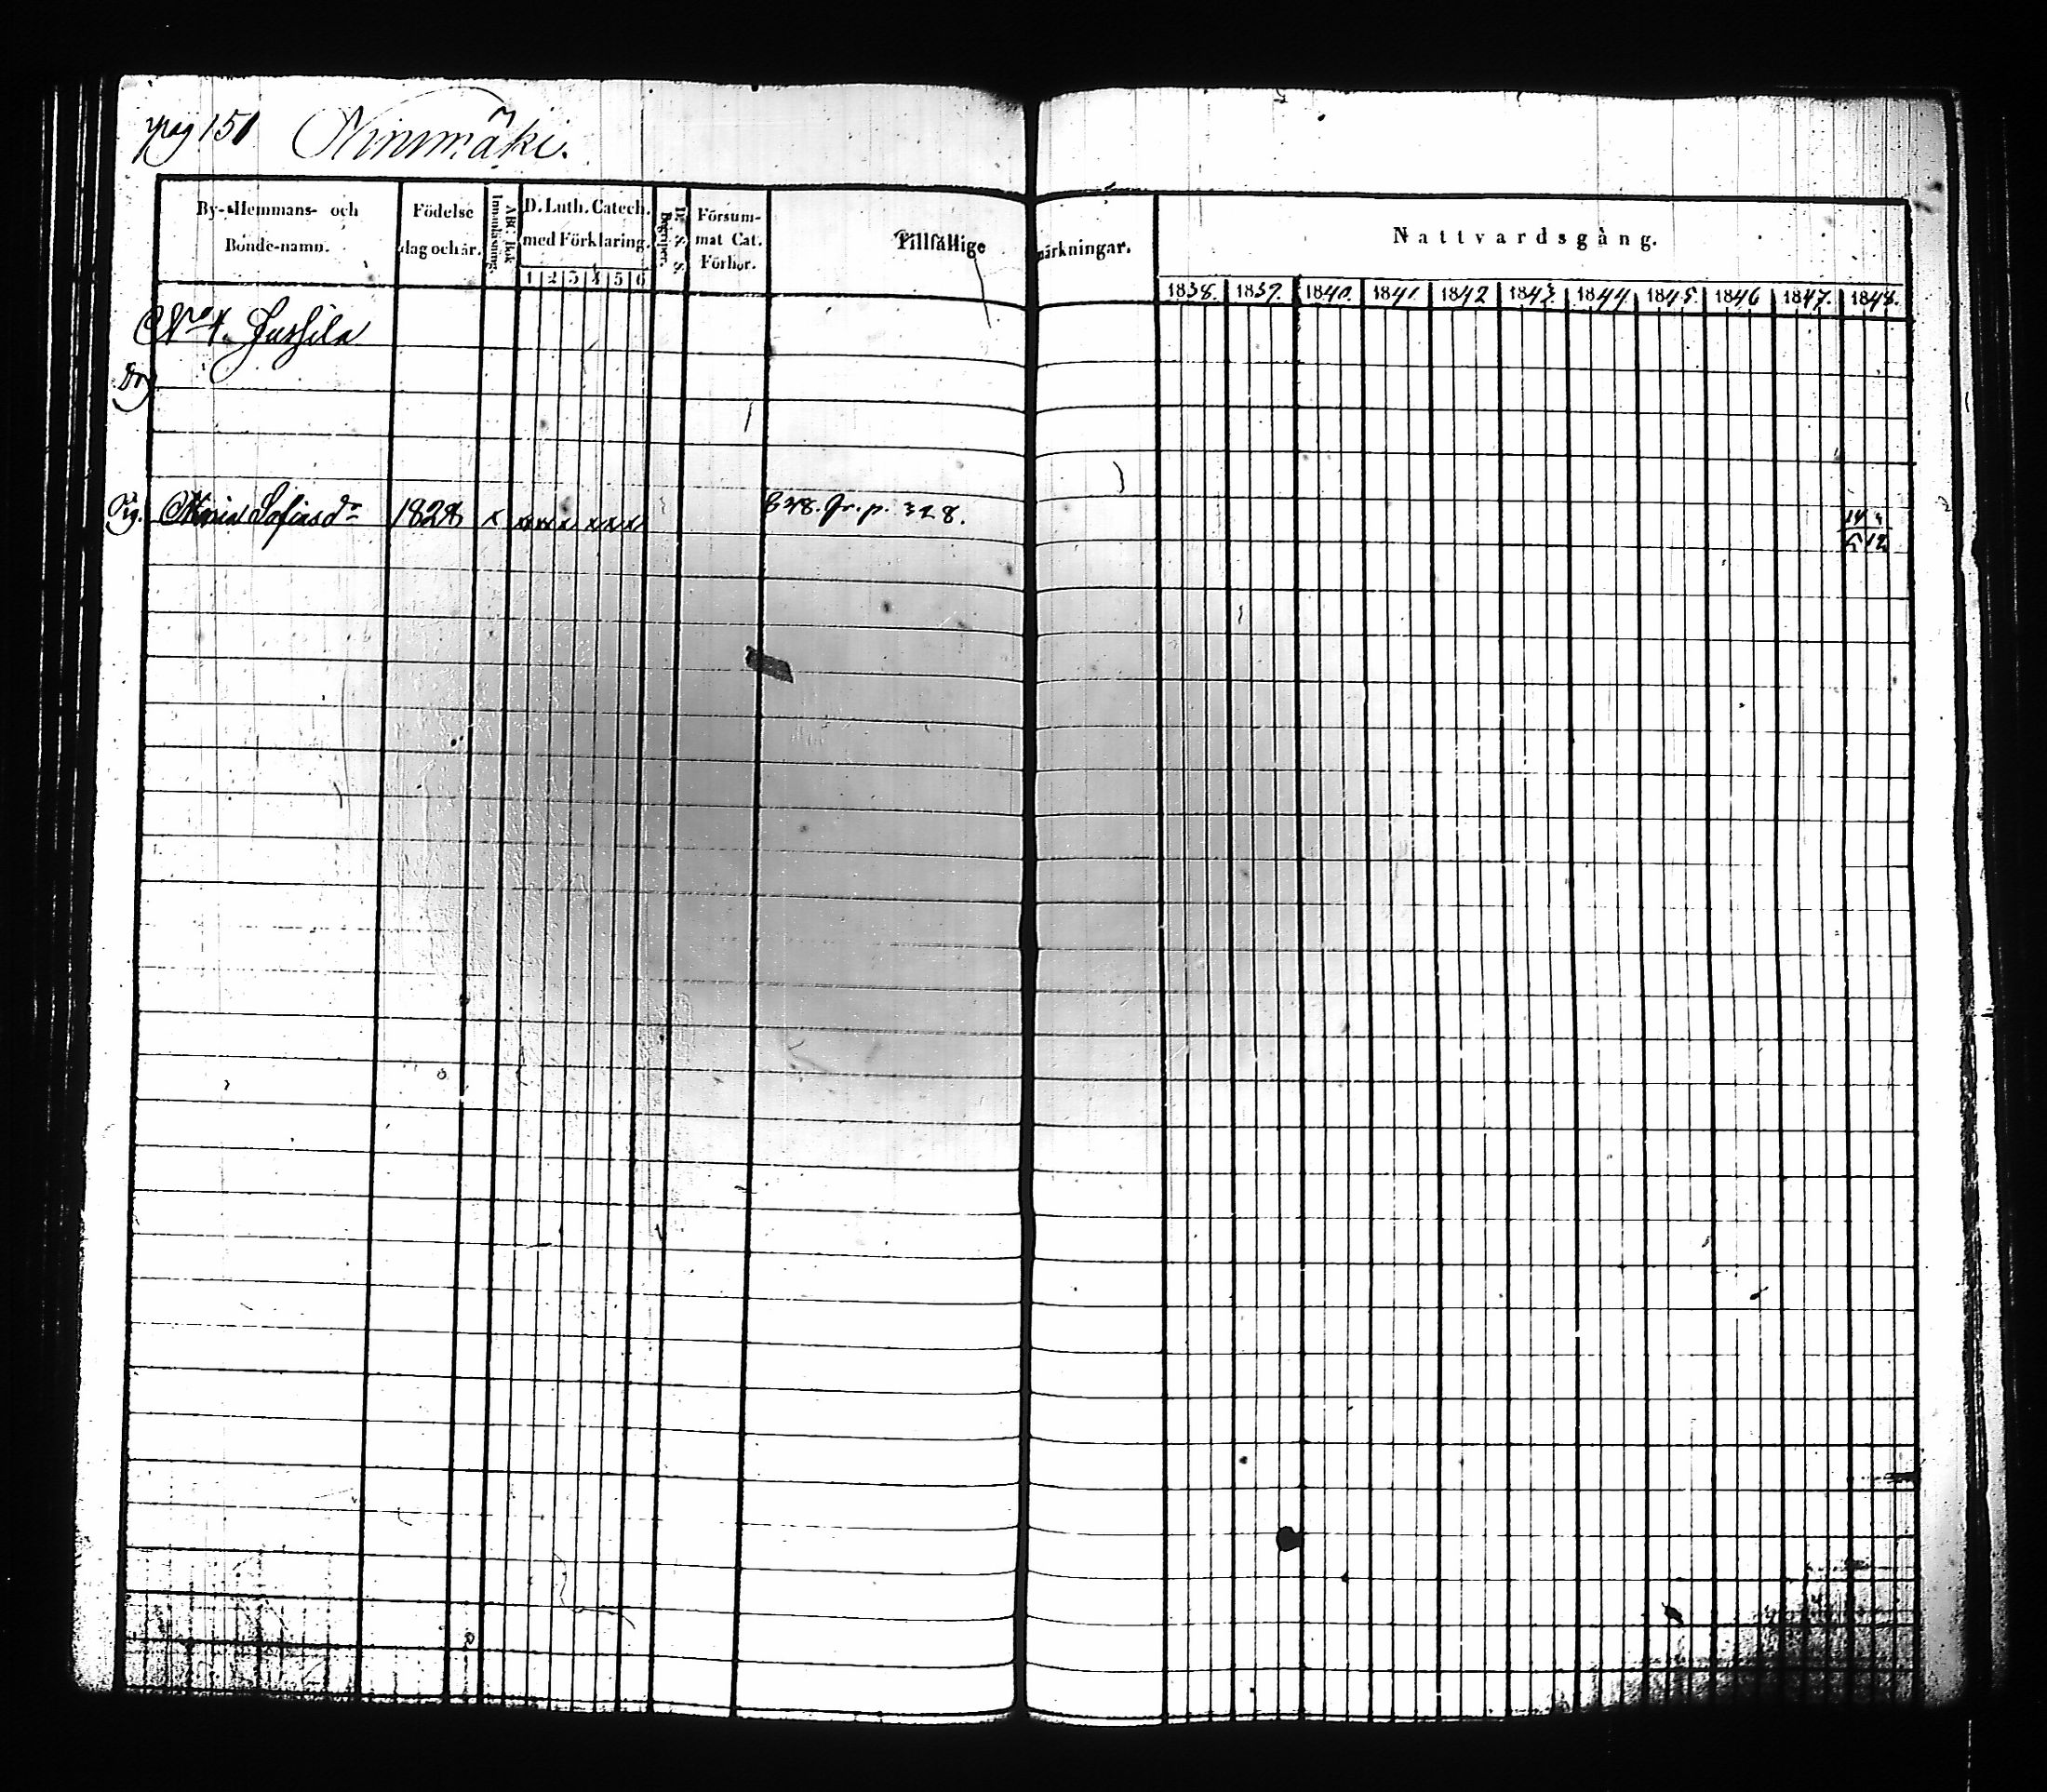 pag 151 Ninimäki.
By- Hemmans- och Bonde-namn.
Födelse dag och år.
ABC Bok Innanläsning.
D. Luth. Catech. med Förklaring.
1 2 3 4 5 6
D. S. S. Begriper.
Försum- mat Cat. Förhör.
Tillfällige
märkningar.
Nattvardsgång.
1838. 1839. 1840. 1841. 1842 1843. 1844 1845. 1846 1847. 1848.
No 4. Jussila
Dr
Pig. Maria Sofiasdr 1828 x x x x x x x 848. fr. p. 328.